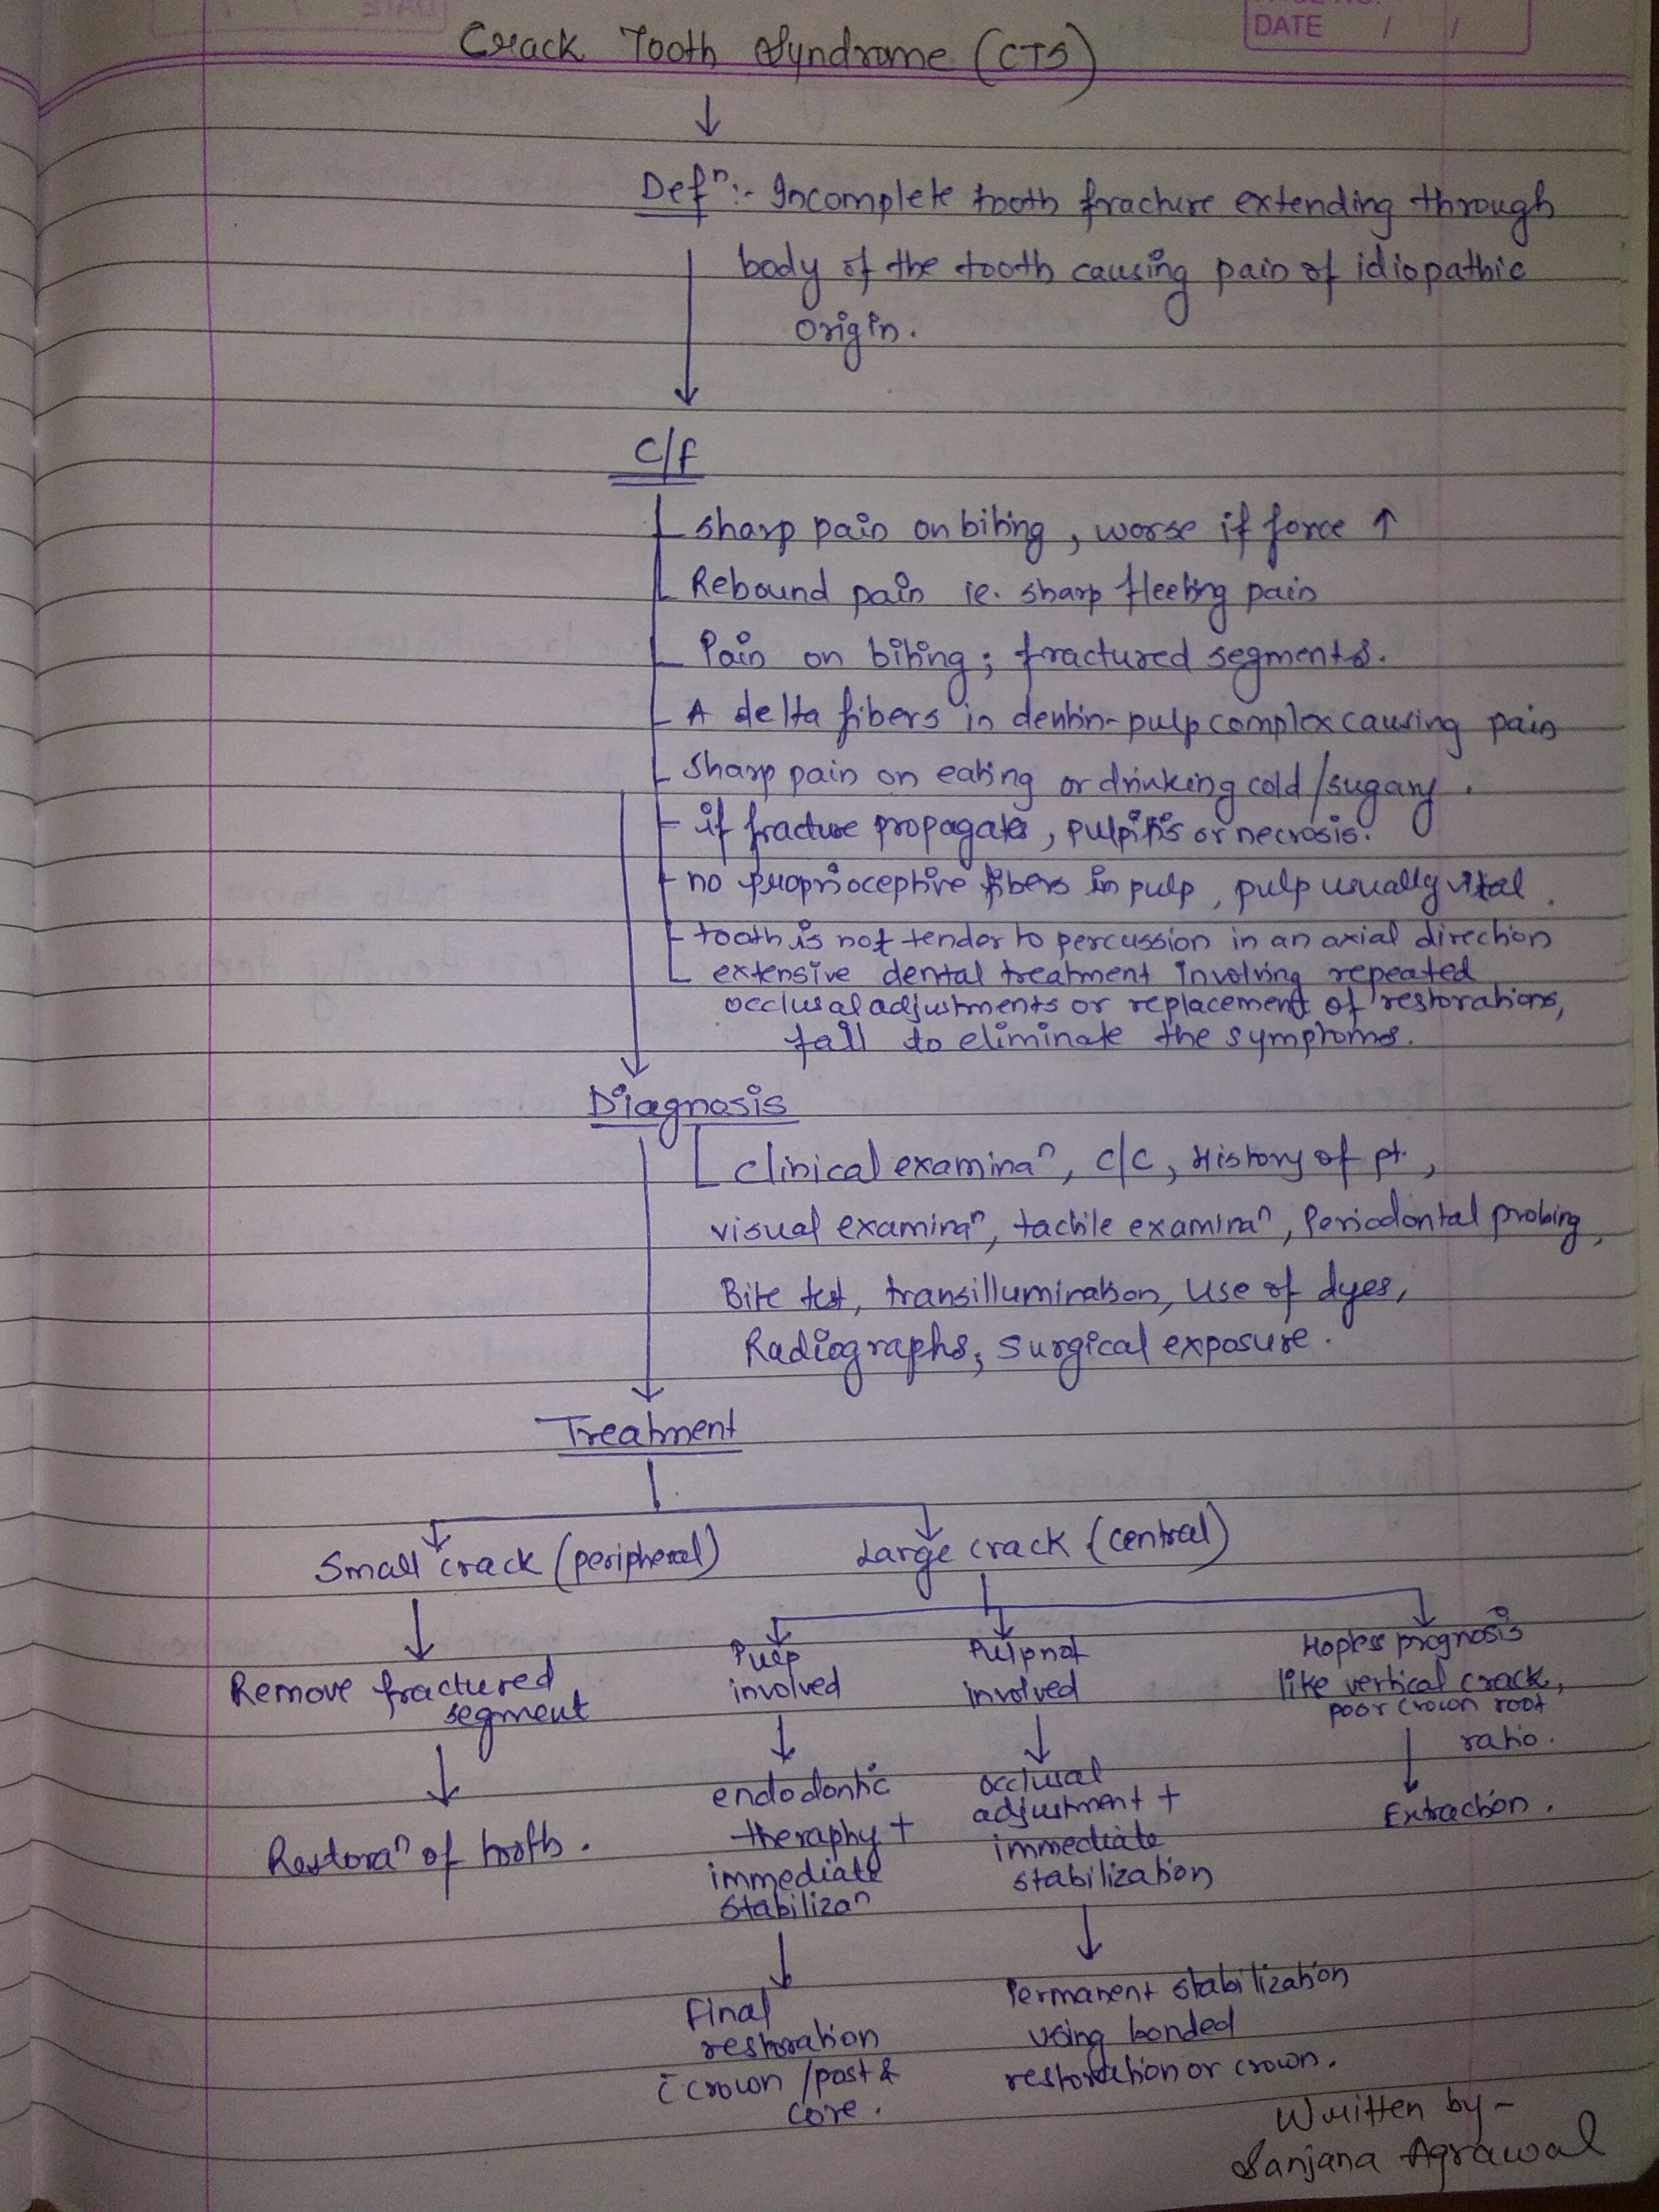 DATE / /
Crack Tooth Syndrome (CTS)
Defⁿ:- Incomplete tooth fracture extending through
body of the tooth causing pain of idiopathic
origin.
C/f
sharp pain on biting, worse if force ↑
Rebound pain ie. sharp fleeting pain
Pain on biting; fractured segments.
A delta fibers in dentin-pulp complex causing pain
Sharp pain on eating or drinking cold/sugary.
if fracture propagates, pulpitis or necrosis.
no proprioceptive fibers in pulp, pulp usually vital.
tooth is not tender to percussion in an axial direction
extensive dental treatment involving repeated
occlusal adjustments or replacement of restorations,
fail to eliminate the symptoms.
Diagnosis
Clinical examinaⁿ, c/c, History of pt.,
visual examinaⁿ, tactile examinaⁿ, Periodontal probing,
Bite test, transillumination, Use of dyes,
Radiographs, Surgical exposure.
Treatment
Small crack (peripheral) Large crack (central)
Remove fractured
segment
Restoraⁿ of tooth.
Pulp
involved
endodontic
theraphy +
immediate
stabilizaⁿ
Final
restoration
c̄ crown /post &
core.
Pulp not
involved
occlusal
adjustment +
immediate
stabilization
Permanent stabilization
using bonded
restoration or crown.
Hopless prognosis
like vertical crack,
poor crown root
ratio.
Extraction.
Written by-
Sanjana Agrawal